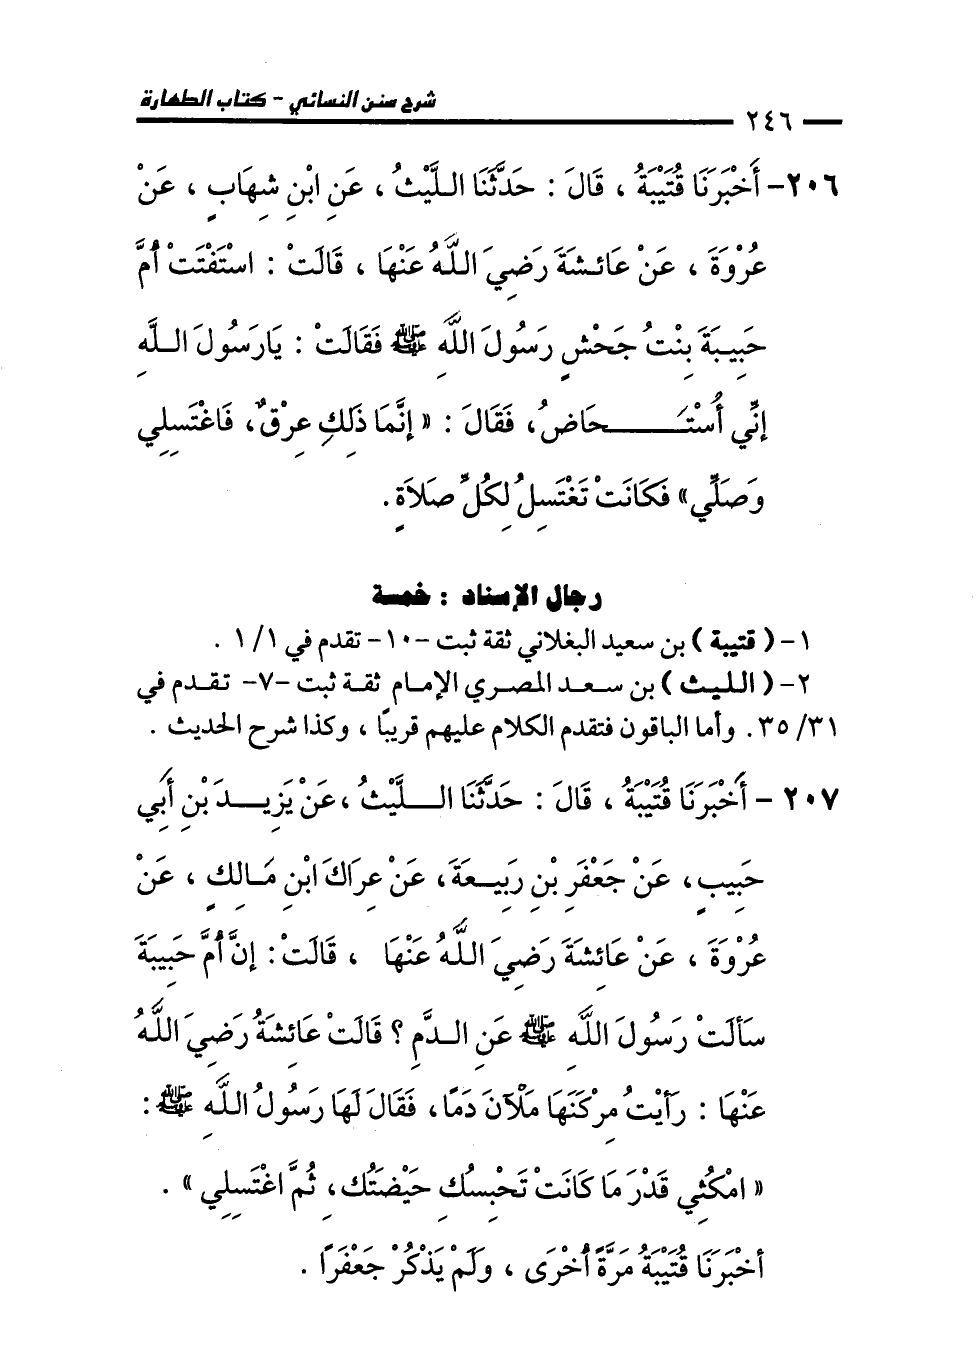 شرح سنن النسائي - كتاب الطهارة
٢٤٦
٢٠٦- أَخْبَرَنَا قُتَيْبَةُ ، قَالَ : حَدَّثَنَا اللَّيْثُ ، عَنِ ابْنِ شِهَابٍ ، عَنْ
عُرْوَةَ ، عَنْ عَائِشَةَ رَضِيَ اللَّهُ عَنْهَا ، قَالَتْ : اسْتَفْتَتْ أُمَّ
حَبِيبَةَ بِنْتُ جَحْشٍ رَسُولَ اللَّهِ ﷺ فَقَالَتْ : يَارَسُولَ اللَّهِ
إِنِّي أُسْتَحَاضُ، فَقَالَ : « إِنَّمَا ذَلِكِ عِرْقٌ، فَاغْتَسِلِي
وَصَلِّي» فَكَانَتْ تَغْتَسِلُ لِكُلِّ صَلاَةٍ .
رجال الإسناد : خمسة
١- ( قتيبة ) بن سعيد البغلاني ثقة ثبت -١٠- تقدم في ١/ ١ .
٢- ( الليث ) بن سعد المصري الإمام ثقة ثبت -٧- تقدم في
٣٥/٣١. وأما الباقون فتقدم الكلام عليهم قريبًا ، وكذا شرح الحديث .
٢٠٧ - أَخْبَرَنَا قُتَيْبَةُ ، قَالَ : حَدَّثَنَا اللَّيْثُ ،عَنْ يَزِيدَ بْنِ أَبِي
حَبِيبٍ، عَنْ جَعْفَرِ بْنِ رَبِيعَةَ، عَنْ عِرَاكَ ابْنِ مَالِكٍ ، عَنْ
عُرْوَةَ ، عَنْ عَائِشَةَ رَضِيَ اللَّهُ عَنْهَا ، قَالَتْ: إِنَّ أُمَّ حَبِيبَةَ
سَأَلَتْ رَسُولَ اللَّهِ ﷺ عَنِ الدَّمِ ؟ قَالَتْ عَائِشَةُ رَضِيَ اللَّهُ
عَنْهَا : رَأَيْتُ مِرْكَنَهَا مَلْآنَ دَمًا، فَقَالَ لَهَا رَسُولُ اللَّهِ ﷺ :
« امْكُثِي قَدْرَ مَا كَانَتْ تَحْبِسُكِ حَيْضَتُكِ، ثُمَّ اغْتَسِلِي » .
أَخْبَرَنَا قُتَيْبَةُ مَرَّةً أُخْرَى ، وَلَمْ يَذْكُرْ جَعْفَرًا .